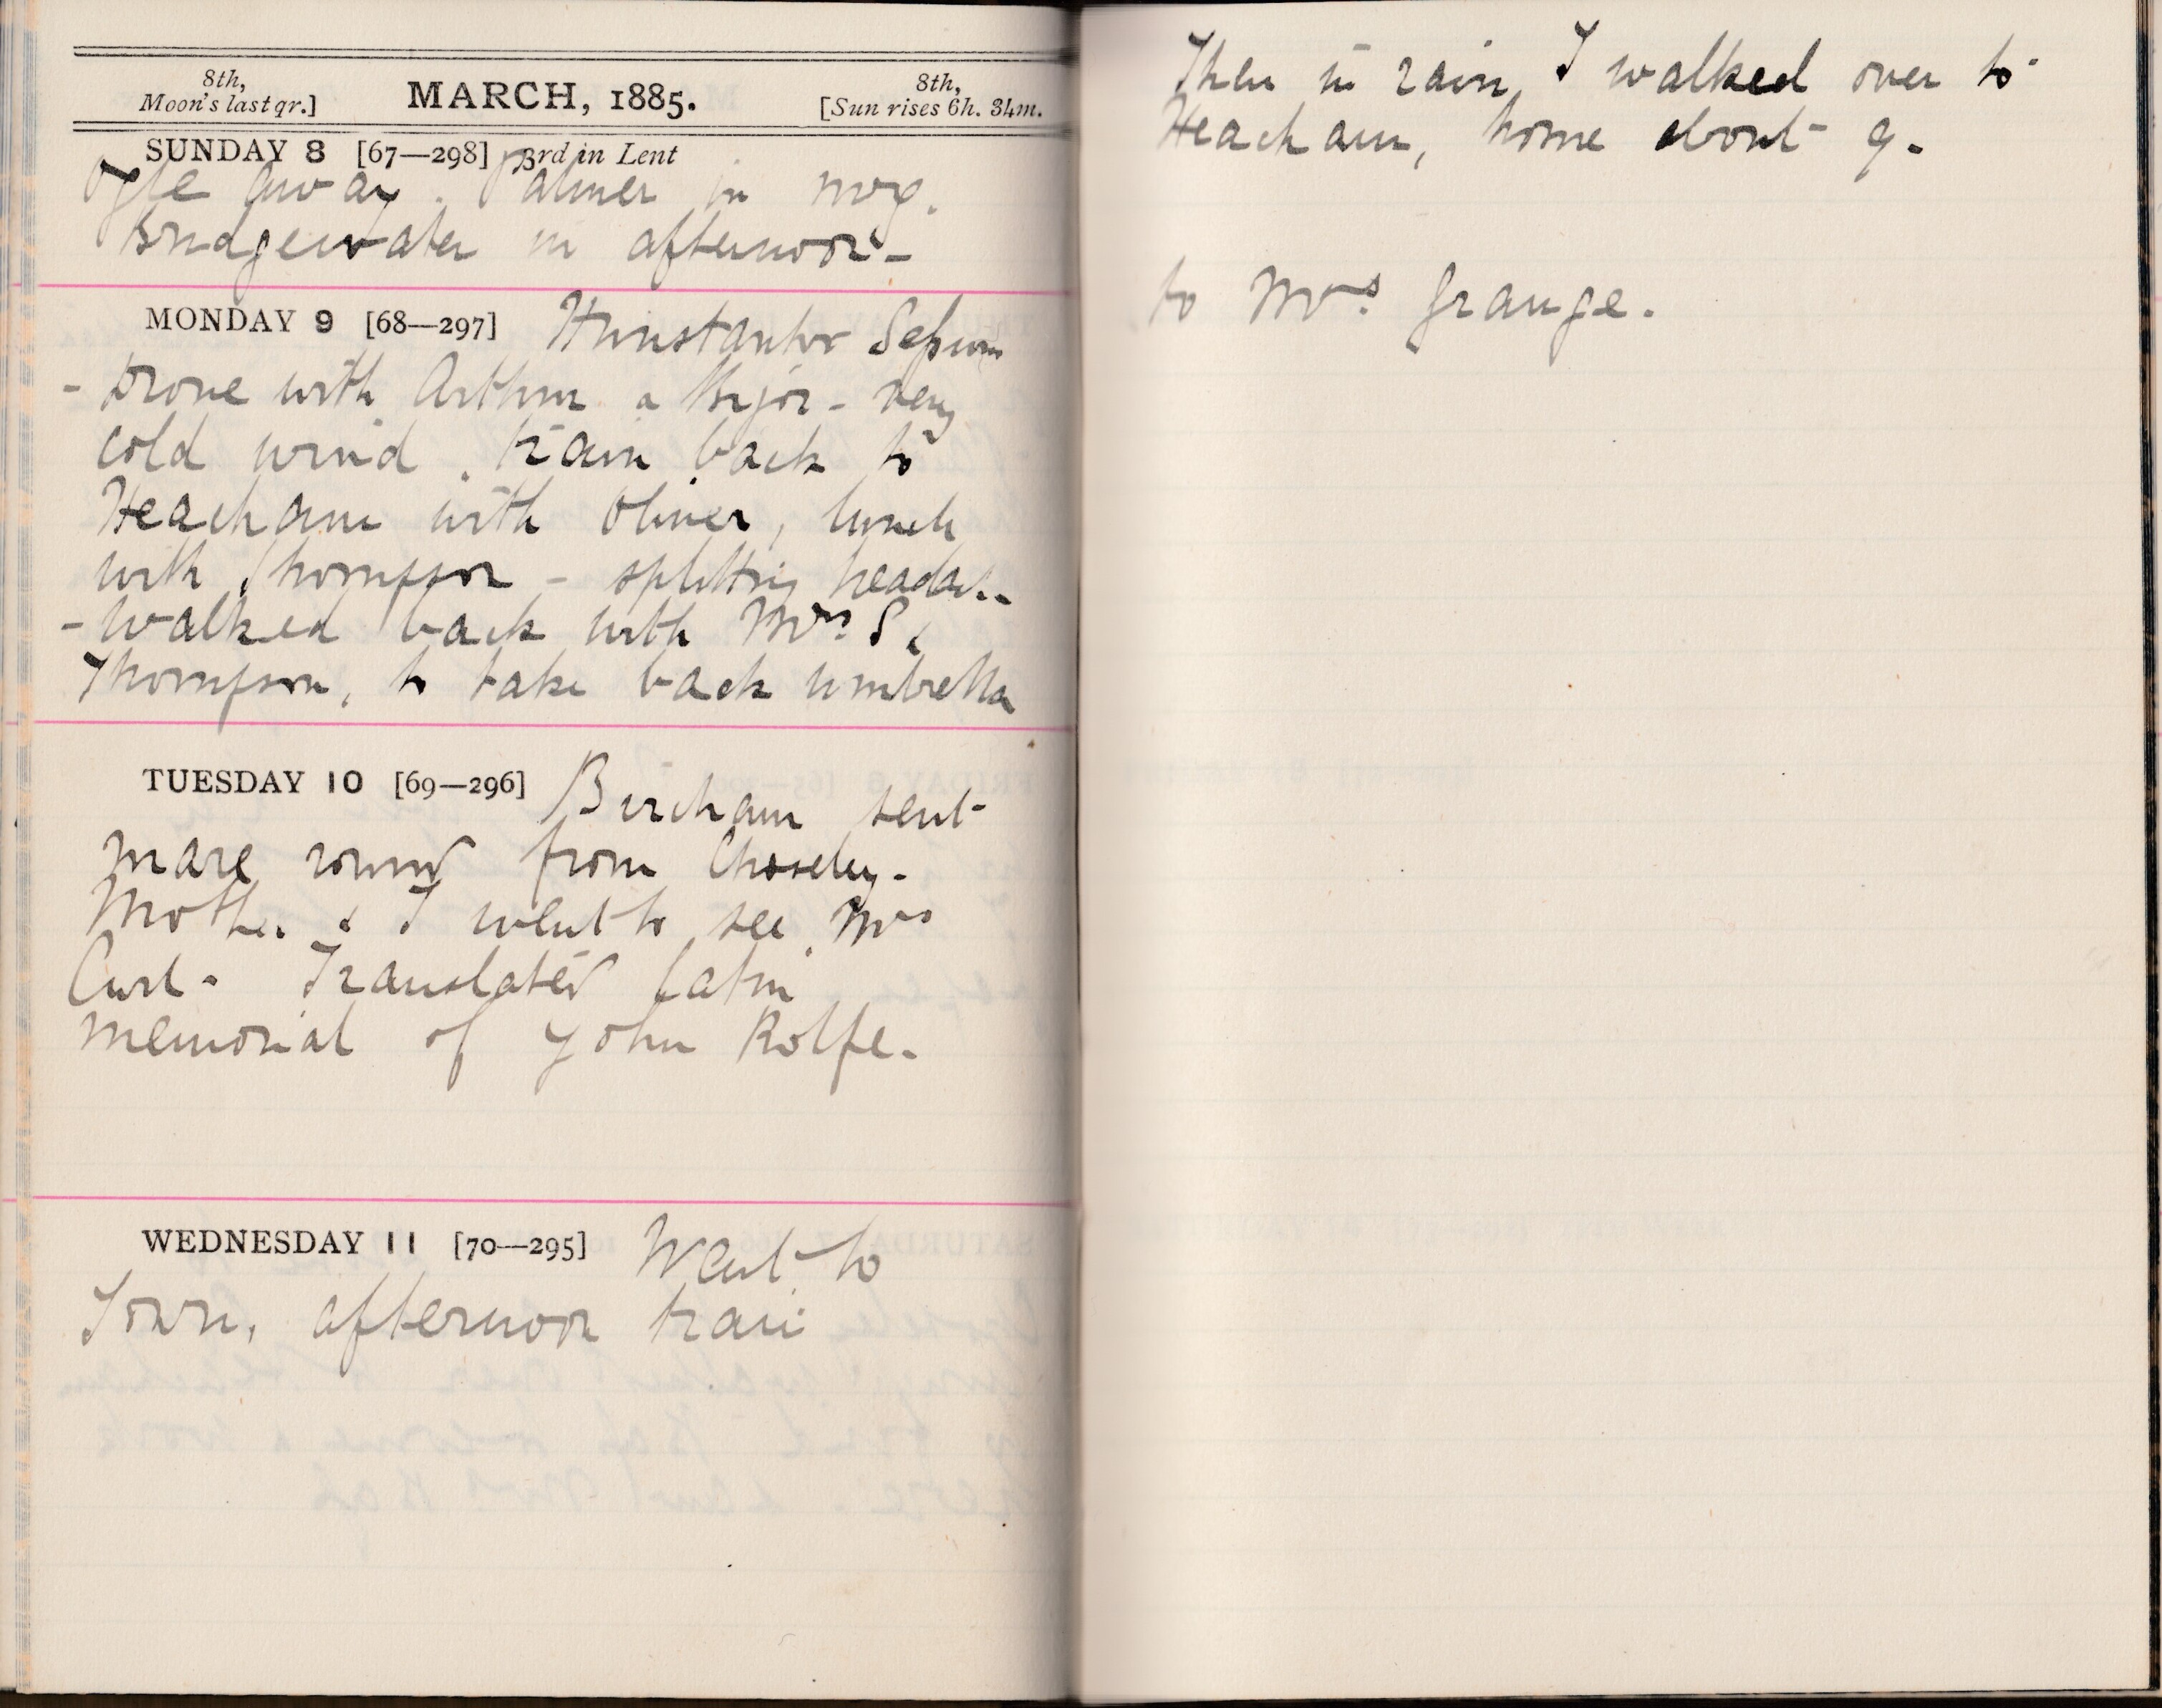 8th,
Moon's last qr.]
MARCH, 1885.
8th,
[Sun rises 6h. 34m.
SUNDAY 8 [67—298] 3rd in Lent
Ogle away. Palmer in mg.
Bridgewater in afternoon -
MONDAY 9 [68—297] Hunstanton Sessions
- Drove with Arthur & - very
cold wind. train back to
Heacham with Oliver, lunch
with Thompson - splitting headache
- walked back with Mrs. S.
Thompson, to take back umbrella
TUESDAY 10 [69—296] Bircham sent
mare round from Choseley.
Mother & I went to see Mrs
Curl. Translated Latin
memorial of John Rolfe.
WEDNESDAY 11 [70—295] Went to
Town, afternoon train
Then in rain, I walked over to
Heacham, home about 9.
to Mrs. Grange.